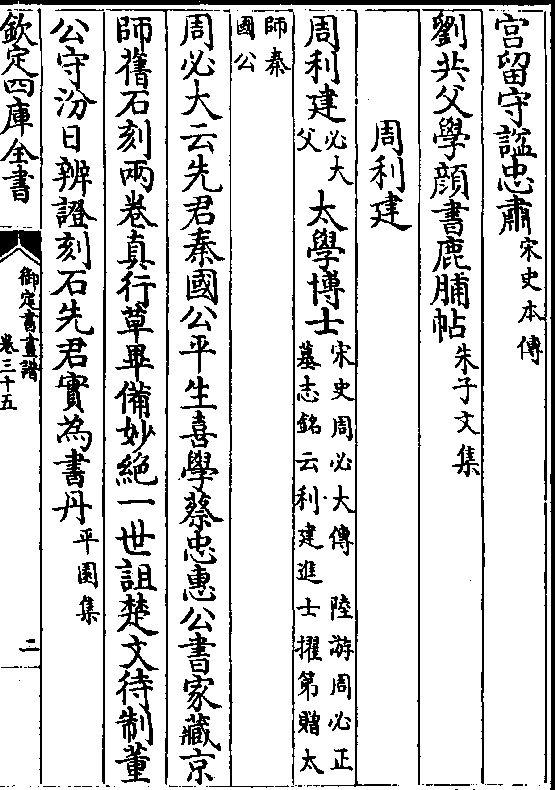 宮留守諡忠肅宋史本傳
劉共父學顔書鹿脯帖朱子文集
周利建
周利建必大父　太學博士宋史周必大傳　陸游周必正墓志銘云利建進士擢第贈太
師秦國公
周必大云先君秦國公平生喜學蔡忠惠公書家藏京
師舊石刻兩卷真行草畢備妙絶一世詛楚文待制董
公守汾日辨證刻石先君實為書丹平園集
欽定四庫全書
御定書畫譜
卷三十五
二